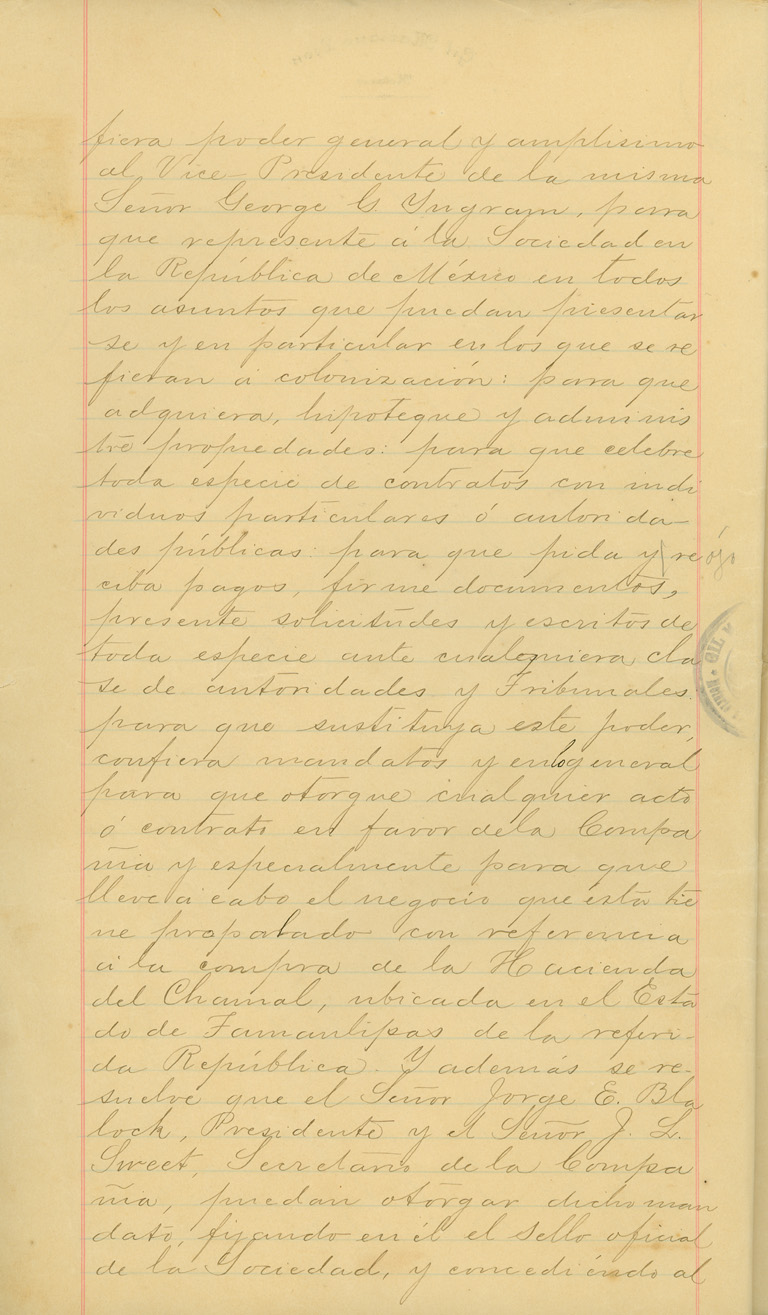 fiera poder general y amplisimo
al Vice-Presidente de la misma
Señor George G Yngram, para
que represente á la Sociedad en
la República de México en todos
los asuntos que puedan presentar
se y en particular en los que se re
fieran á colonización: para que
adquiera, hipoteque y adminis
tre propiedades: para que celebre
toda especie de contratos con indi
viduos particulares ó autorida-
des públicas: para que pida y re
ciba pagos, firme documentos,
presente solicitudes y escritos de
toda especie ante cualquiera cla
se de autoridades y Tribunales:
para que sustituya este poder,
confiera mandatos y en lo general
para que otorgue cualquier acto
ó contrato en favor de la Compa
ñia y especialmente para que
lleve á cabo el negocio que esta tie
ne propalado con referencia
á la compra de la Hacienda
del Chamal, ubicada en el Esta
do de Tamaulipas de la referi-
da República. Y además se re-
suelve que el Señor Jorge E. Bla
lock, Presidente y el Señor J. L.
Sweet, Secretario de la Compa
ñia, puedan otorgar dicho man
dato, fijando en él el sello oficial
de la Sociedad, y concediéndo al
GIL